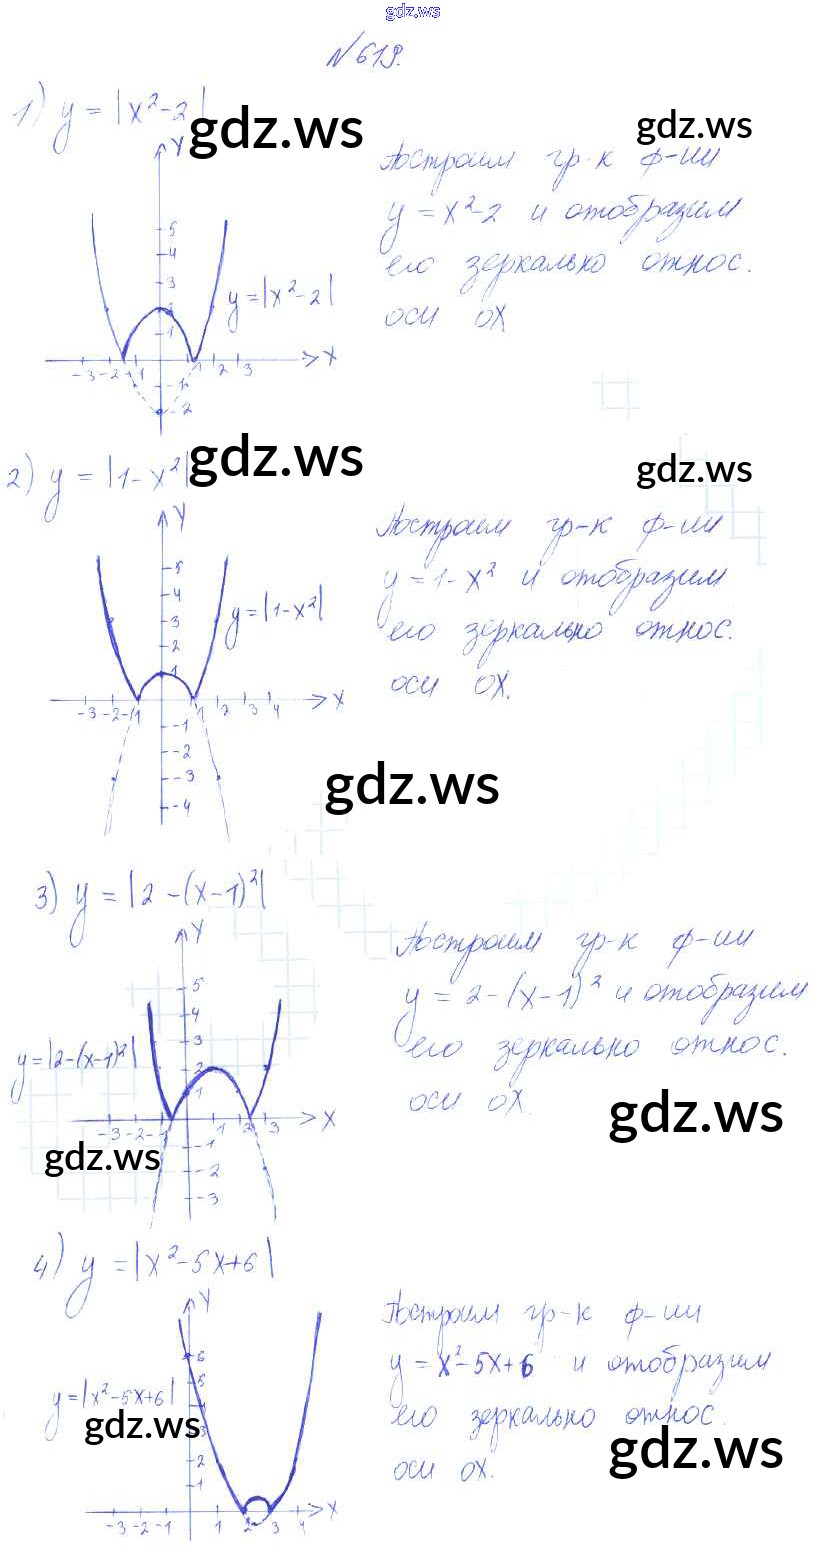 gdz.ws
№619.
1) y = |x²-2|
gdz.ws
gdz.ws
Y
Построим гр-к ф-ии
y = x²-2 и отобразим
его зеркально относ.
оси OX
5
4
3
2
1
y=|x²-2|
-3 -2 -1 1 2 3 X
-1
-2
2) y = |1-x²|
gdz.ws
gdz.ws
Y
Построим гр-к ф-ии
y = 1-x² и отобразим
его зеркально относ.
оси OX.
5
4
3
2
1
y=|1-x²|
-3 -2 -1 1 2 3 4 X
-1
-2
-3
-4
gdz.ws
3) y = |2-(x-1)²|
Y
Построим гр-к ф-ии
y = 2-(x-1)² и отобразим
его зеркально относ.
оси OX.
gdz.ws
5
4
3
2
1
y=|2-(x-1)²|
-3 -2 -1 1 2 3 X
-1
-2
-3
gdz.ws
4) y = |x²-5x+6|
Y
Построим гр-к ф-ии
y = x²-5x+6 и отобразим
его зеркально относ.
оси OX.
gdz.ws
6
5
4
3
2
1
y=|x²-5x+6|
gdz.ws
-3 -2 -1 1 2 3 4 X